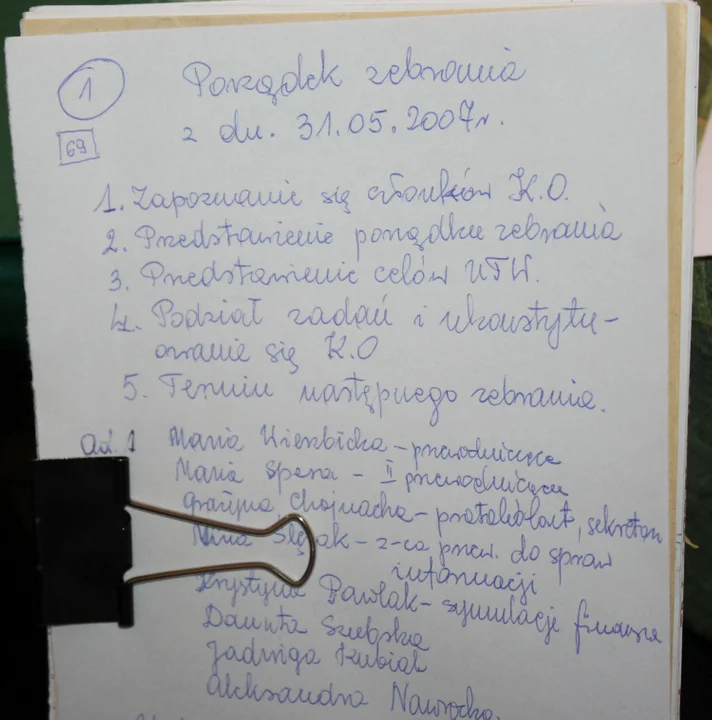 1
Porządek zebrania
69
z dn. 31.05.2007r.
1. Zapoznanie się członków K.O.
2. Przedstawienie porządku zebrania
3. Przedstawienie celów UTW.
4. Podział zadań i ukonstytu-
owanie się K.O
5. Termin następnego zebrania.
ad. 1 Maria Wierzbicka - przewodnicząca
Maria Spera - II przewodnicząca
Grażyna Chojnacka - protokólant, sekretarz
z-ca przew. do spraw
informacji
Krystyna Pawlak - symulacje finansowe
Danuta
Jadwiga Kubiak
Aleksandra Nawrocka